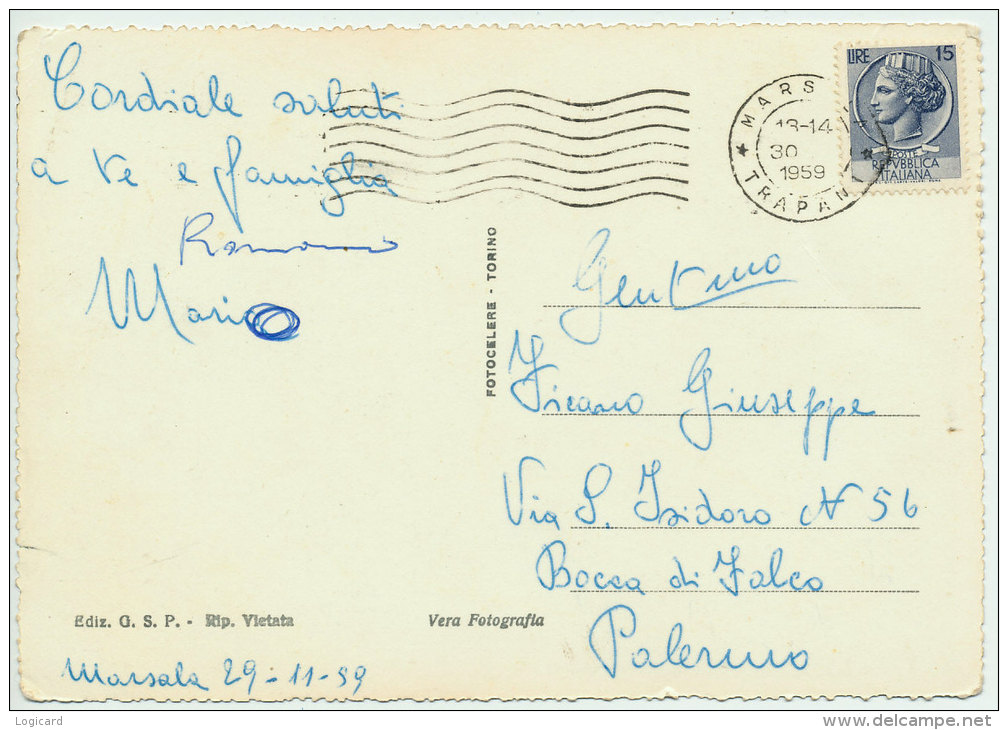 Cordiale saluti
a te e famiglia
Romano
Mario
Marsala 29-11-59
Ediz. G. S. P. - Rip. Vietata
Vera Fotografia
FOTOCELERE - TORINO
LIRE 15
POSTE
REPVBBLICA
ITALIANA
★ MARS
13-14
30
1959
★ TRAPANI ★
Gent.mo
Ficano Giuseppe
Via S. Isidoro N 56
Bocca di Falco
Palermo
Logicard
www.delcampe.net